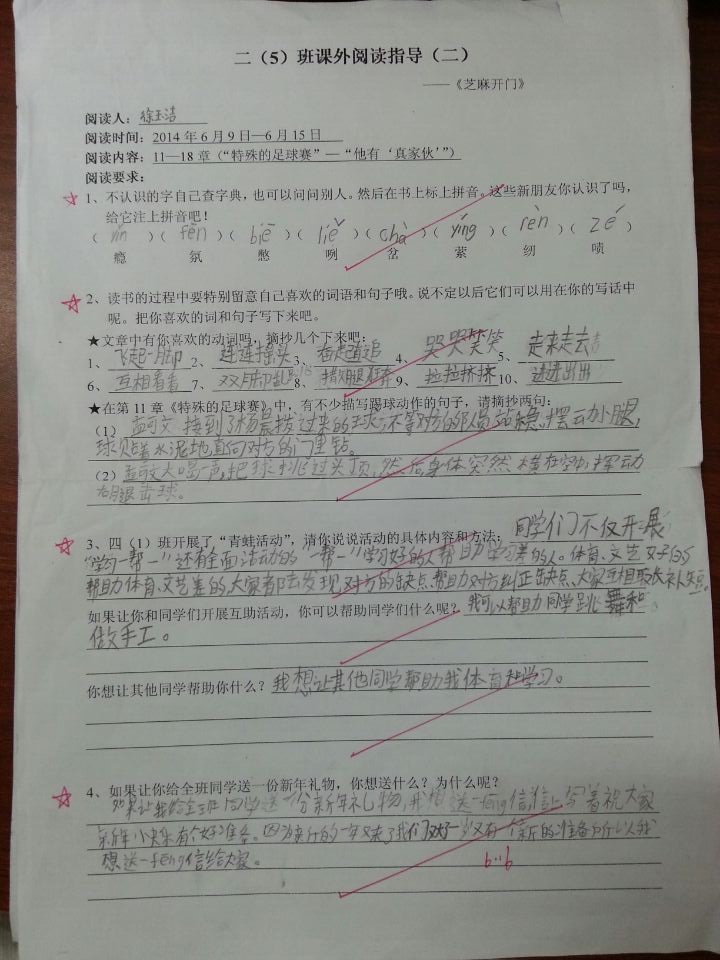 二（5）班课外阅读指导（二）
——《芝麻开门》
阅读人：徐玉洁
阅读时间：2014年6月9日—6月15日
阅读内容：11—18章（“特殊的足球赛”—“他有‘真家伙’”）
阅读要求：
1、不认识的字自己查字典，也可以问问别人。然后在书上标上拼音。这些新朋友你认识了吗，
给它注上拼音吧！
（yǐn）（fēn）（biē）（liě）（chà）（yíng）（rèn）（zé）
瘾 氛 憋 咧 岔 萦 纫 啧
2、读书的过程中要特别留意自己喜欢的词语和句子哦。说不定以后它们可以用在你的写话中
呢。把你喜欢的词和句子写下来吧。
★文章中有你喜欢的动词吗，摘抄几个下来吧：
1、飞起一脚 2、连连摇头 3、奋起直追 4、哭哭笑笑 5、走来走去
6、互相看看 7、双脚乱 8、 9、拉拉挤挤 10、进进出出
★在第11章《特殊的足球赛》中，有不少描写踢球动作的句子，请摘抄两句：
（1）孟可文接到了杨晨拨过来的球，不等对方的队员站稳，摆动小腿，
球贴着水泥地直向对方的门里钻。
（2）孟可文大喝一声，把球挑过头顶，然后身体突然横在空中，摆动
右腿击球。
3、四（1）班开展了“青蛙活动”，请你说说活动的具体内容和方法：同学们不仅开展
“学习一帮一”还有全面活动的“一帮一”学习好的人帮助学习差的人。体育、文艺好的
帮助体育、文艺差的，大家都去发现对方的缺点，帮助对方纠正缺点、大家互相取长补短。
如果让你和同学们开展互助活动，你可以帮助同学们什么呢？我可以帮助同学跳舞和
做手工。
你想让其他同学帮助你什么？我想让其他同学帮助我体育和学习。
4、如果让你给全班同学送一份新年礼物，你想送什么？为什么呢？
如果让我给全班同学送一份新年礼物，我想送一feng信，信上写着祝大家
新年快乐有个好准备。因为新的一年又来了我们又有一个新的准备所以我
想送一feng信给大家。
6..6